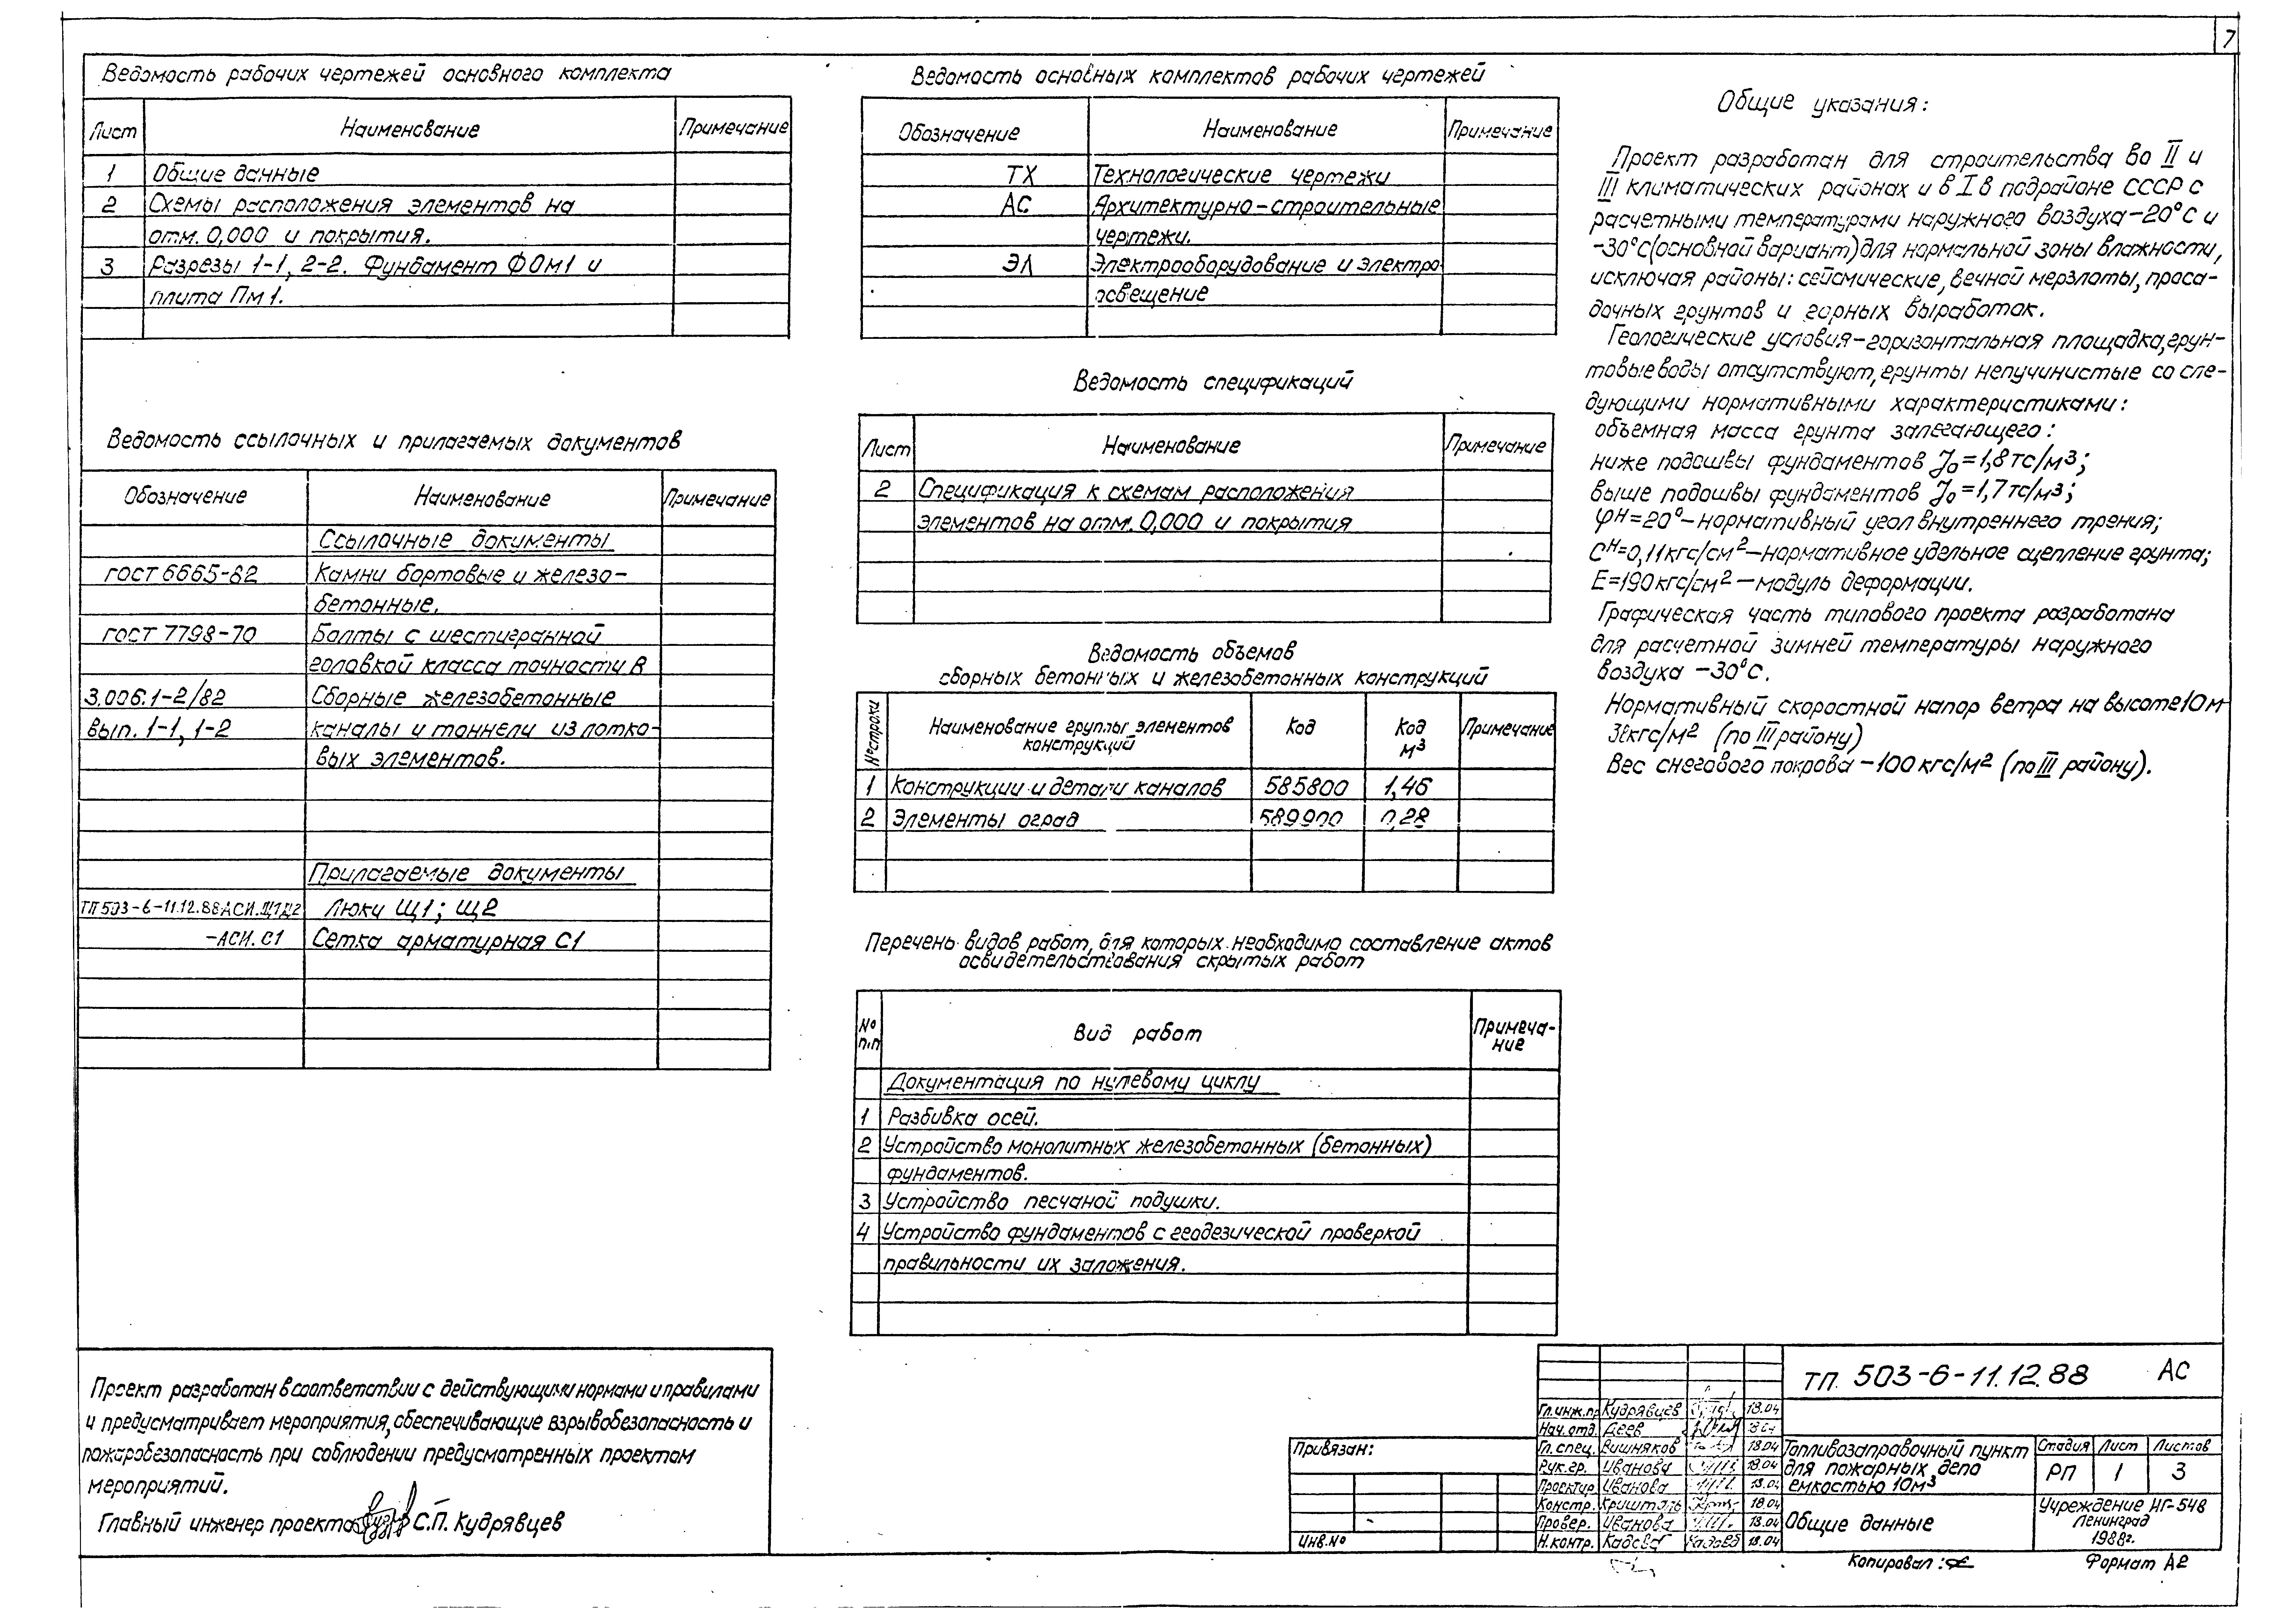 7
Ведомость рабочих чертежей основного комплекта
Лист Наименование Примечание
1 Общие данные
2 Схемы расположения элементов на
отм. 0,000 и покрытия.
3 Разрезы 1-1, 2-2. Фундамент ФОм1 и
плита Пм1.
Ведомость ссылочных и прилагаемых документов
Обозначение Наименование Примечание
Ссылочные документы
ГОСТ 6665-82 Камни бортовые и железо-
бетонные.
ГОСТ 7798-70 Болты с шестигранной
головкой класса точности В
3.006.1-2/82 Сборные железобетонные
вып. 1-1, 1-2 каналы и тоннели из лотко-
вых элементов.
Прилагаемые документы
ТП 503-6-11.12.88 АСИ.Щ1,Щ2 Люки Щ1; Щ2
-АСИ.С1 Сетка арматурная С1
Проект разработан в соответствии с действующими нормами и правилами
и предусматривает мероприятия, обеспечивающие взрывобезопасность и
пожаробезопасность при соблюдении предусмотренных проектом
мероприятий.
Главный инженер проекта С.П. Кудрявцев
Ведомость основных комплектов рабочих чертежей
Обозначение Наименование Примечание
ТХ Технологические чертежи
АС Архитектурно-строительные
чертежи.
ЭЛ Электрооборудование и электро-
освещение
Ведомость спецификаций
Лист Наименование Примечание
2 Спецификация к схемам расположения
элементов на отм. 0,000 и покрытия
Ведомость объемов
сборных бетонных и железобетонных конструкций
№ строки Наименование группы элементов конструкций Код Код м³ Примечание
1 Конструкции и детали каналов 585800 1,46
2 Элементы оград 589900 0,28
Перечень видов работ, для которых необходимо составление актов
освидетельствования скрытых работ
№ п.п Вид работ Примеча-
ние
Документация по нулевому циклу
1 Разбивка осей.
2 Устройство монолитных железобетонных (бетонных)
фундаментов.
3 Устройство песчаной подушки.
4 Устройство фундаментов с геодезической проверкой
правильности их заложения.
Общие указания:
Проект разработан для строительства во II и
III климатических районах и в I в подрайоне СССР с
расчетными температурами наружного воздуха -20°С и
-30°С (основной вариант) для нормальной зоны влажности,
исключая районы: сейсмические, вечной мерзлоты, проса-
дочных грунтов и горных выработок.
Геологические условия - горизонтальная площадка, грун-
товые воды отсутствуют, грунты непучинистые со сле-
дующими нормативными характеристиками:
объемная масса грунта залегающего:
ниже подошвы фундаментов γ₀=1,8 тс/м³;
выше подошвы фундаментов γ₀=1,7 тс/м³;
φᴴ=20° - нормативный угол внутреннего трения;
Cᴴ=0,11 кгс/см² - нормативное удельное сцепление грунта;
Е=190 кгс/см² - модуль деформации.
Графическая часть типового проекта разработана
для расчетной зимней температуры наружного
воздуха -30°С.
Нормативный скоростной напор ветра на высоте 10 м
кгс/м² (по III району)
Вес снегового покрова - 100 кгс/м² (по III району).
Привязан:
Инв.№
Гл.инж.пр Кудрявцев 18.04
Нач.отд. Деев
Гл.спец. Вишняков 18.04
Рук.гр. Иванова 18.04
Проектир. Иванова 18.04
Констр. Криштель 18.04
Провер. Иванова 18.04
Н.контр. Кадева 18.04
ТП. 503-6-11.12.88 АС
Топливозаправочный пункт
для пожарных депо
емкостью 10м³
Стадия Лист Листов
РП 1 3
Общие данные
Учреждение НГ-548
Ленинград
1988г.
Копировал: Формат А2